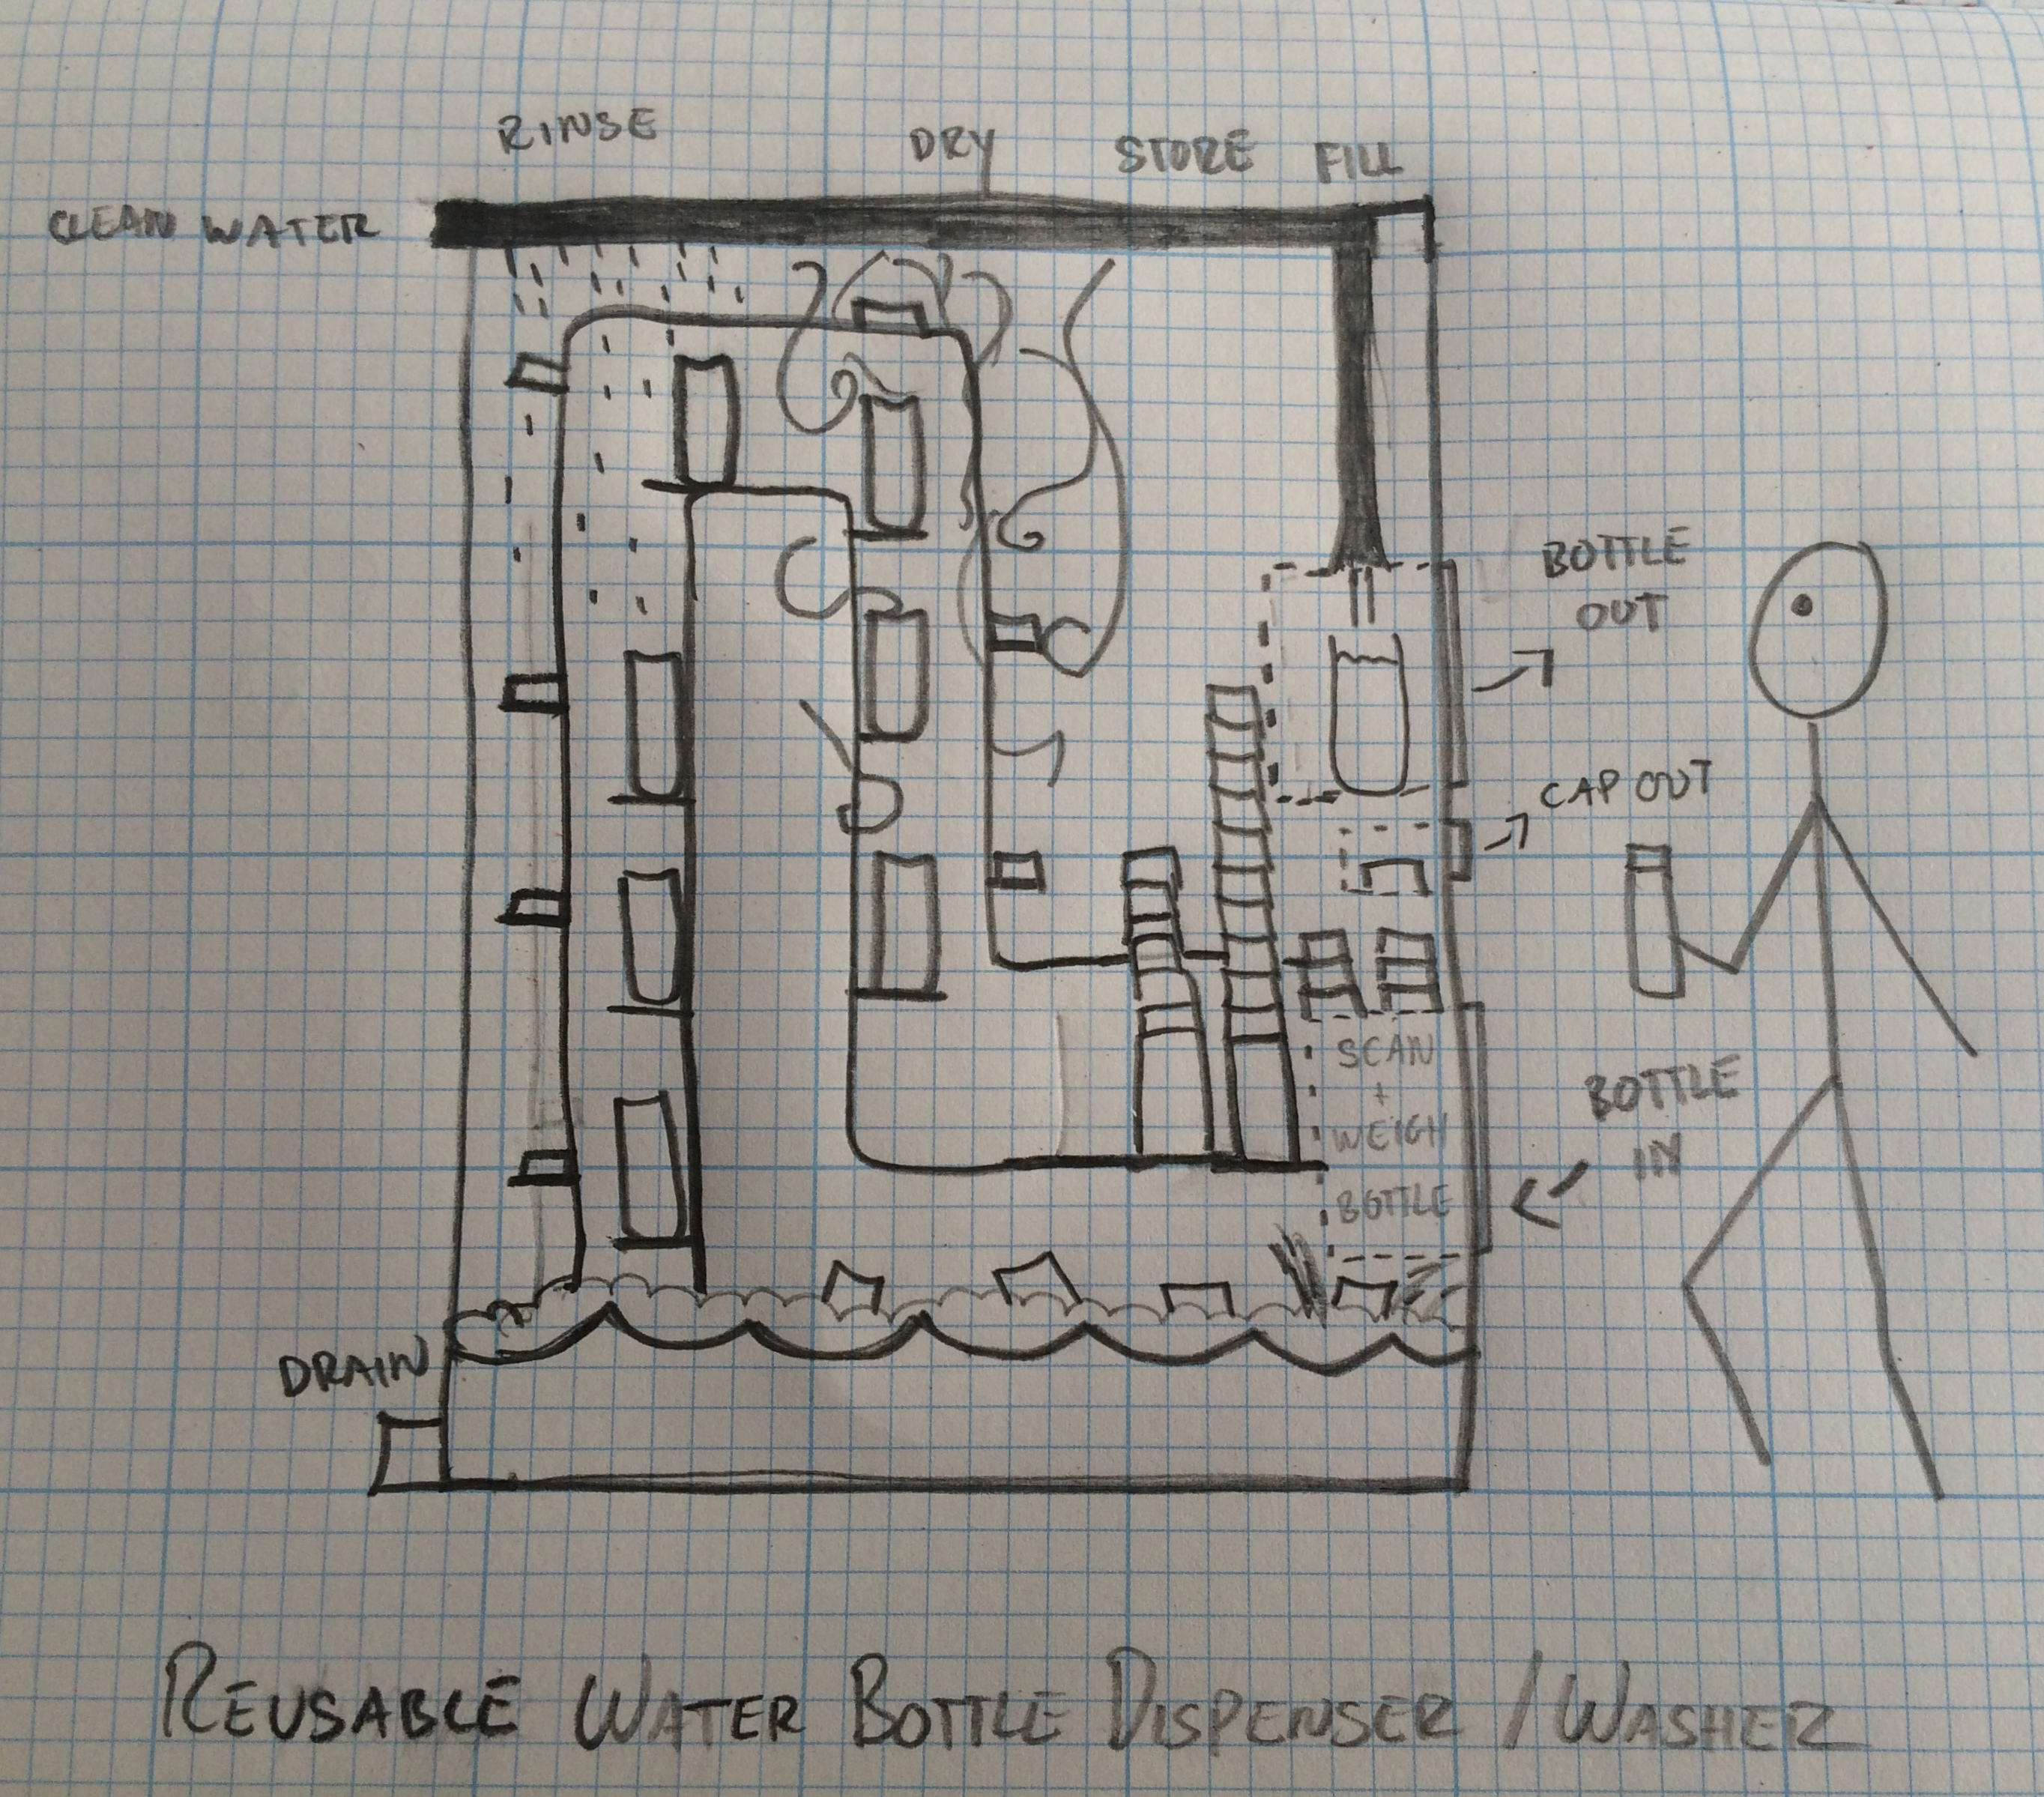 RINSE
DRY
STORE
FILL
CLEAN WATER
BOTTLE
OUT
CAP OUT
SCAN
+
WEIGH
BOTTLE
BOTTLE
IN
DRAIN
REUSABLE WATER BOTTLE DISPENSER / WASHER